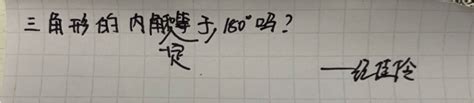 三角形的内角和一定等于180°吗？